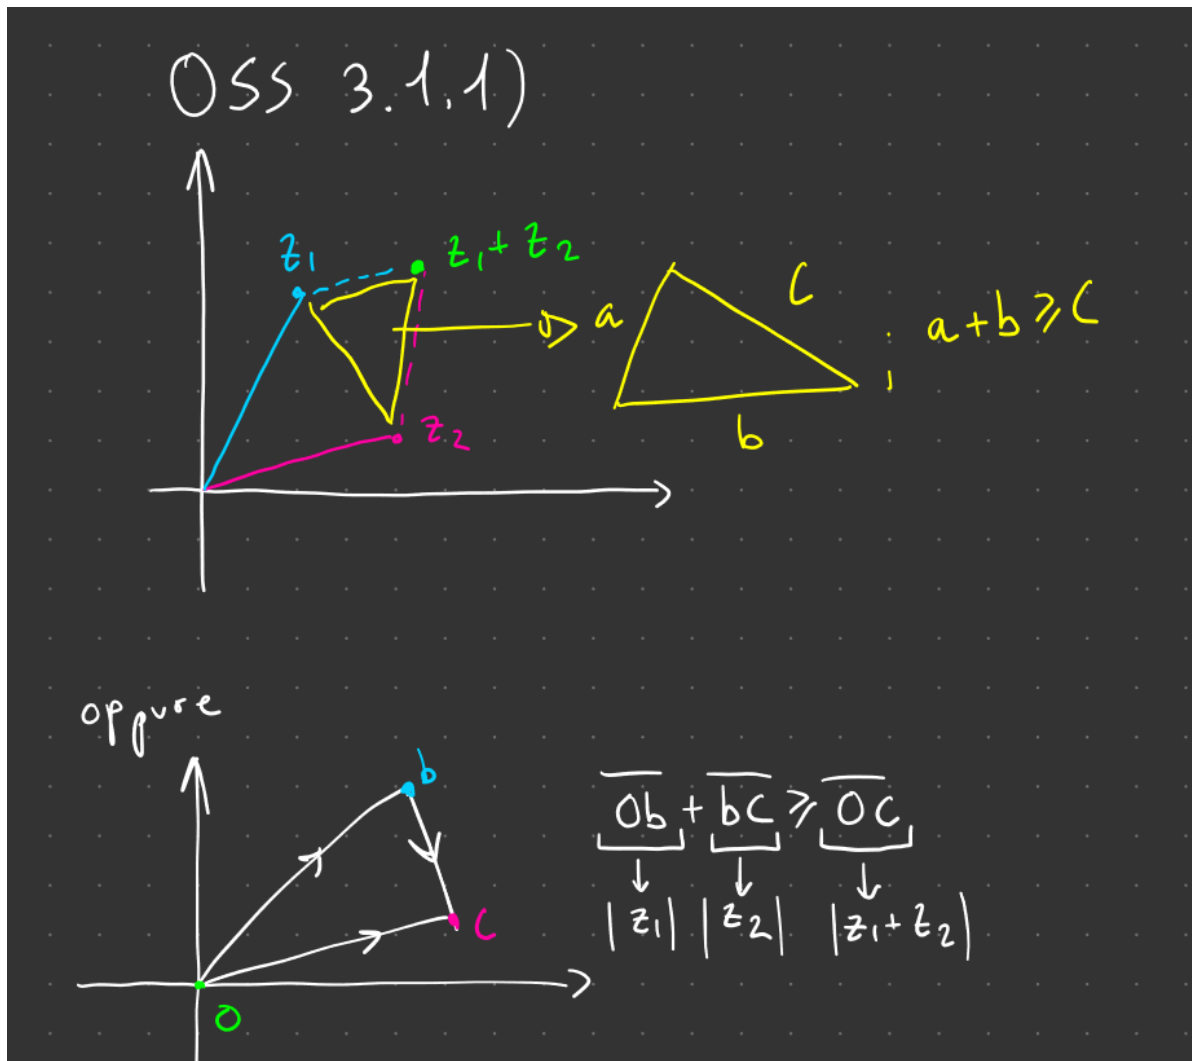 OSS 3.1.1)
z₁
z₁+z₂
z₂
a
c
b
; a+b ≥ c
oppure
b
c
0
0b + bc ≥ 0c
|z₁| |z₂| |z₁+z₂|